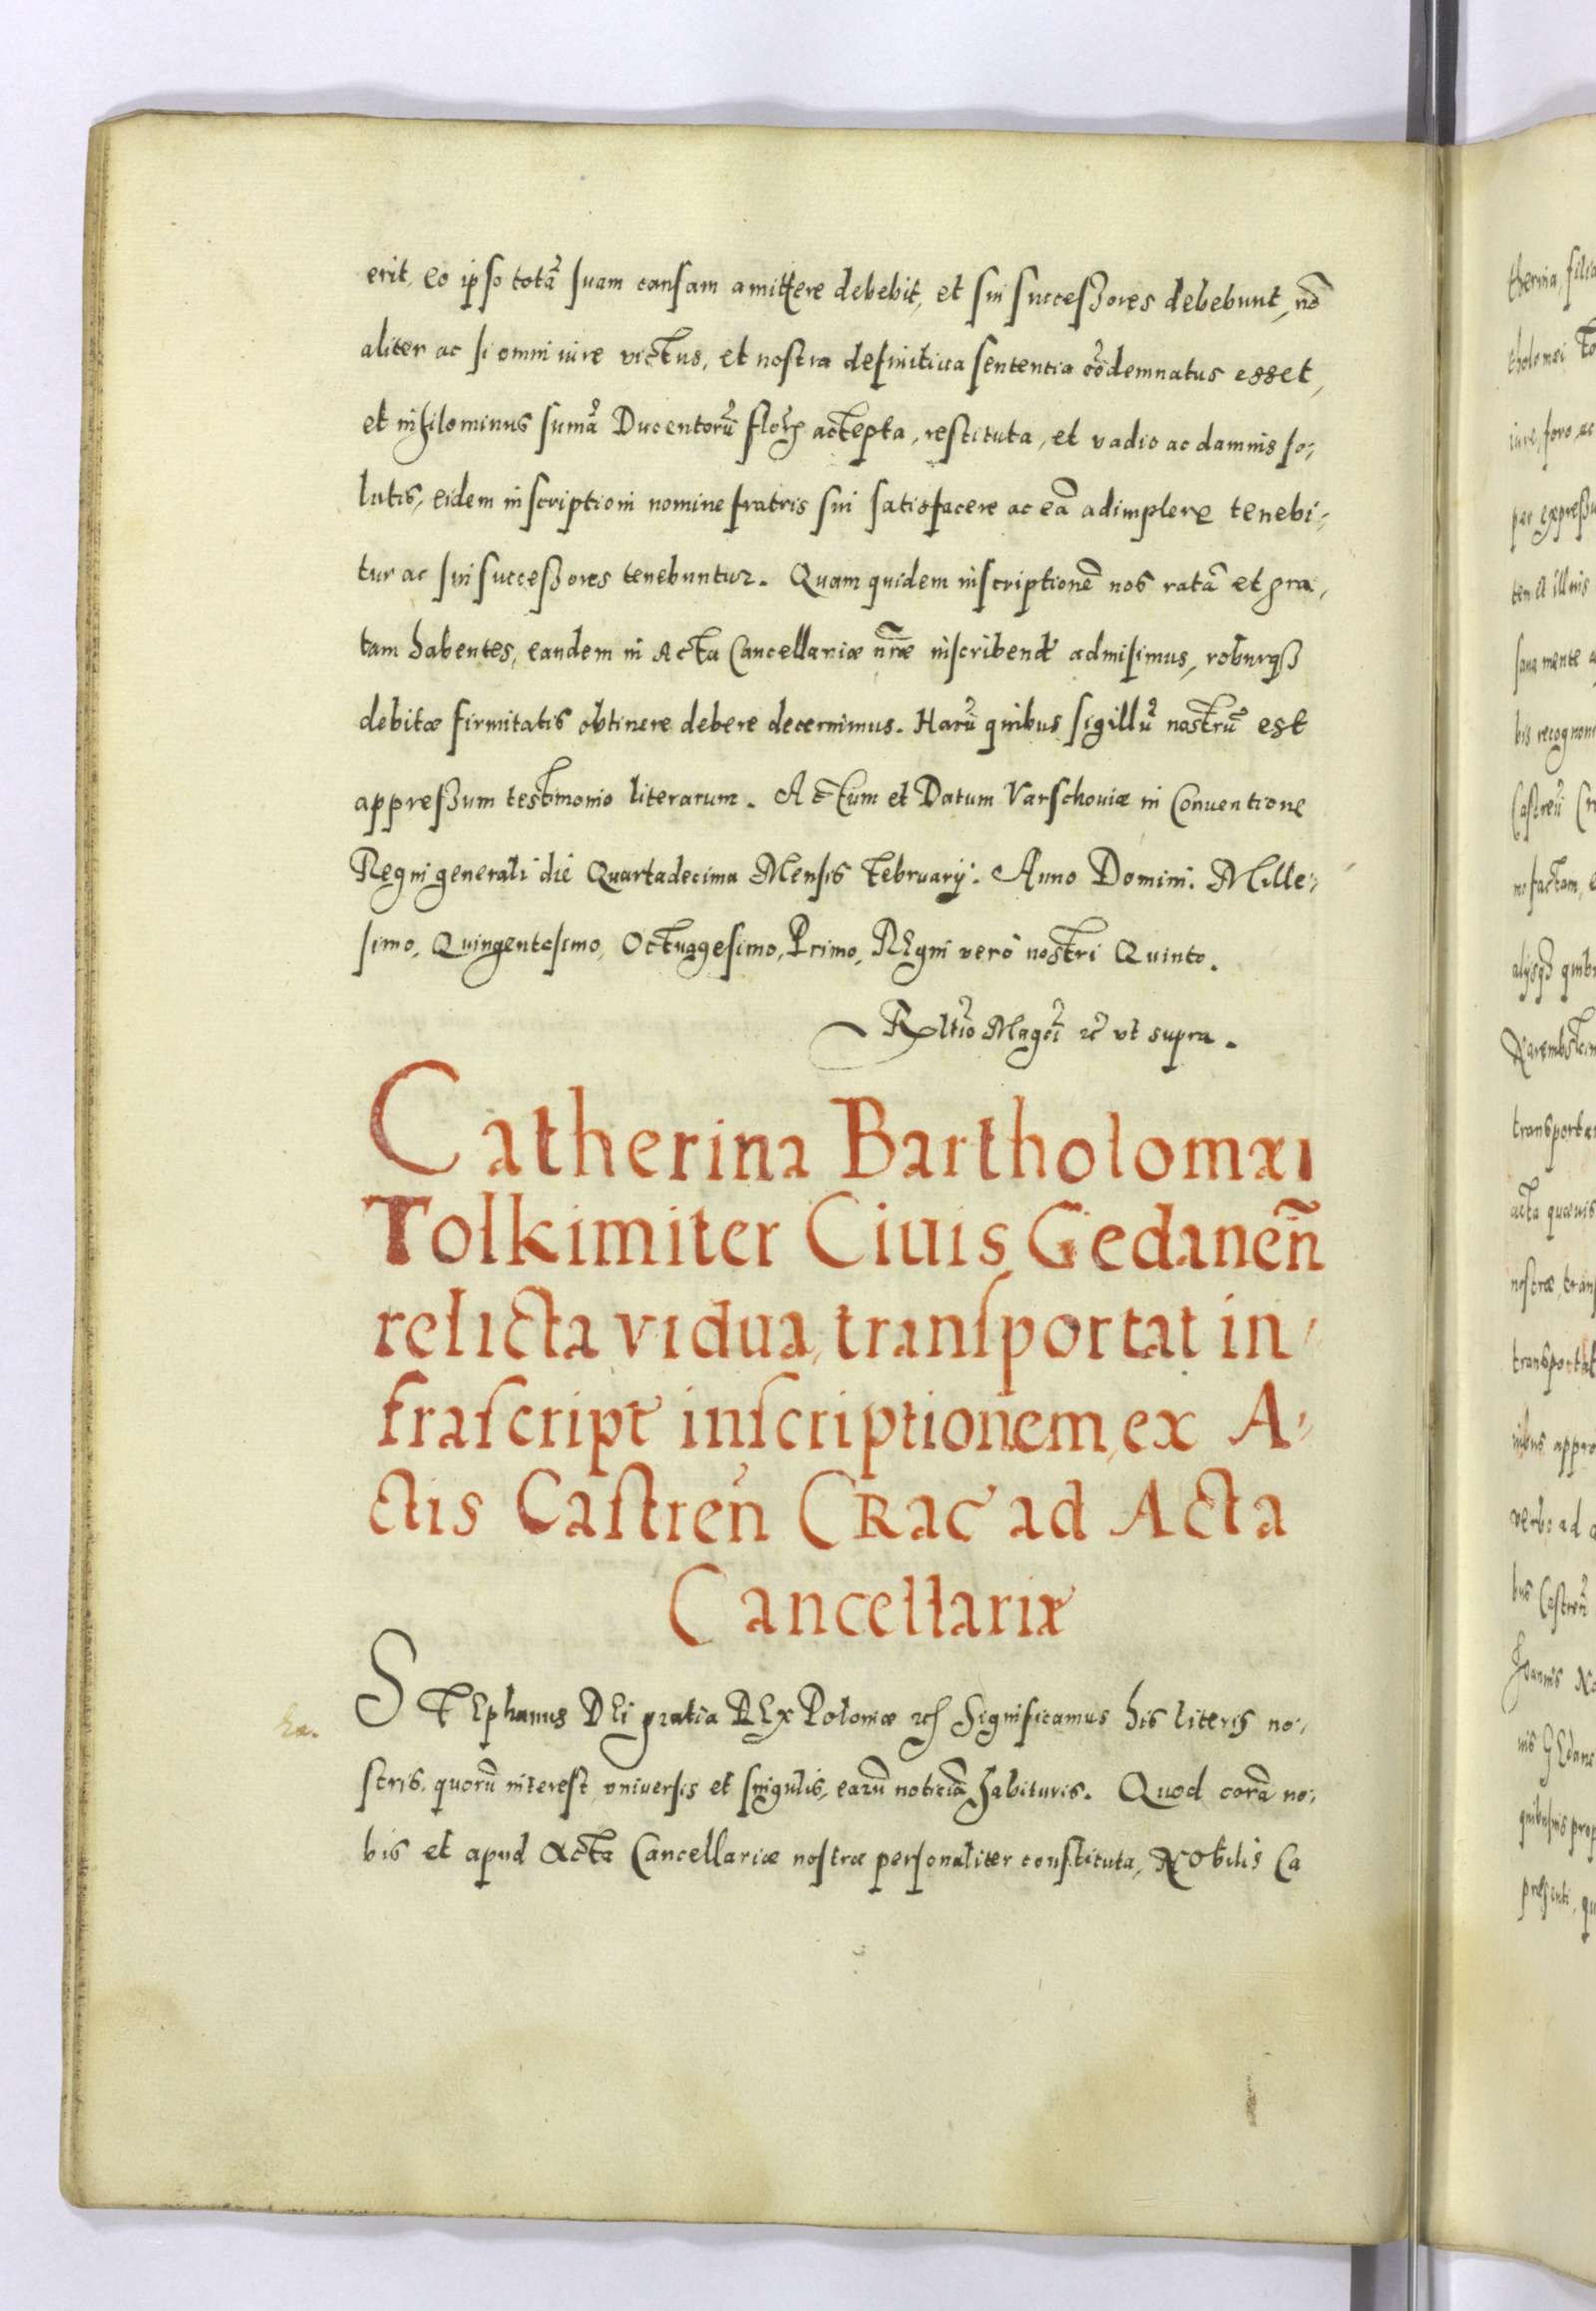 erit, eo ipso totã suam causam amittere debebit, et sui successores debebunt, nõ
aliter ac si omni iure victus, et nostra definitiua sententia cõdemnatus esset,
et nihilominus sumã Ducentorũ floꝝ accepta, restituta, et vadio ac damnis so,
lutis, eidem inscriptioni nomine fratris sui satisfacere ac eã adimplere tenebi,
tur ac sui successores tenebuntur. Quam quidem inscriptionẽ nos ratã et gra,
tam habentes, eandem in Acta Cancellariæ nr̃æ inscribend' admisimus, roburqß
debitæ firmitatis obtinere debere decernimus. Harũ quibus sigillũ nostrũ est
appressum testimonio literarum. Actum et Datum Varschouiæ in Conuentione
Regni generali die Quartadecima Mensis februarij. Anno Domini. Mille,
simo, Quingentesimo, Octuagesimo, Primo, REgni verò nostri Quinto.
Rltĩo Magcĩ ꝛc̃ vt supra.
Catherina Bartholomæi
Tolkimiter Ciuis Gedaneñ
relicta vidua, transportat in,
frascript' inscriptionem, ex A,
ctis Castreñ CRac' ad Acta
Cancellariæ
STEphanus DEi gratia REx Poloniæ ꝛcꝭ Significamus his literis no,
stris, quorũ interest, vniuersis et singulis, earũ noticiã habituris. Quod corã no,
bis et apud Acta Cancellariæ nostræ personaliter constituta, Nobilis Ca
therina, filia
tholomei To
iure, foro, ac
per expressu
ten et illius
sana mente
bis recognoui
Castreñ Cr
no factam,
alijsqß quib
transporta
acta quæuis
nostræ, tran
transportat
nibus appro
verbo ad
bus Castreñ
Ioannis No
nis GEdane
quibusuis prop
presenti, qu